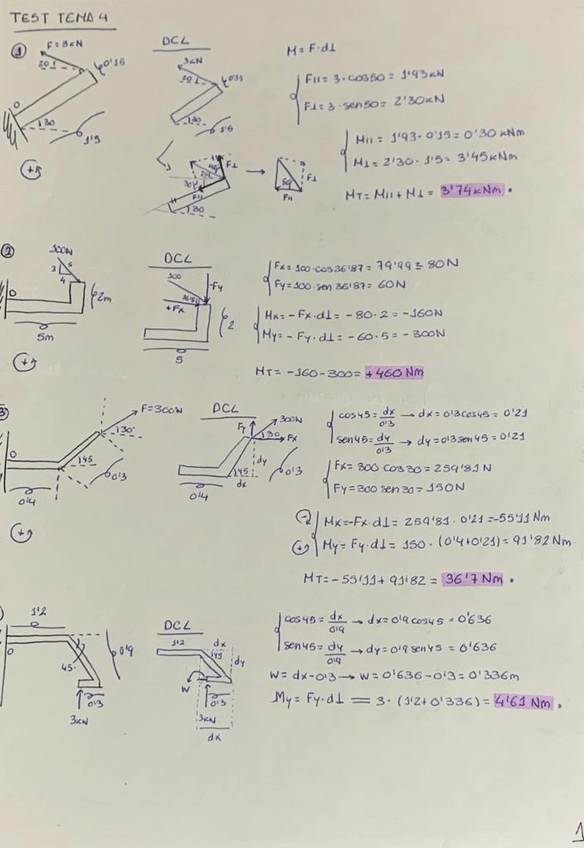 TEST TEMA 4
①
F=3kN
20°
0'15
O
30
1'5
DCL
3kN
20°
0'15
30
1'5
F⊥
F॥
30
F⊥
50
F॥
M=F·d⊥
F॥ = 3·cos50 = 1'93kN
F⊥ = 3·sen50 = 2'30kN
M॥ = 1'93·0'15 = 0'30 kNm
M⊥ = 2'30·1'5 = 3'45kNm
MT = M॥ + M⊥ = 3'74kNm.
②
100N
3
5
4
O
2m
5m
DCL
100
-Fy
+Fx
2
5
Fx=100·cos36'87=79'99≃80N
Fy=100·sen36'87=60N
Mx=-Fx·d⊥=-80·2=-160N
My=-Fy·d⊥=-60·5=-300N
MT=-160-300=+460 Nm
3
F=300N
30°
O
45
0'3
0'4
DCL
Fy
300N
30
Fx
45
dy
0'3
0'4
dx
cos45=dx/0'3 → dx=0'3cos45=0'21
sen45=dy/0'3 → dy=0'3sen45=0'21
Fx=300cos30=259'81N
Fy=300sen30=150N
Mx=-Fx·d⊥=259'81·0'21=-55'11Nm
My=Fy·d⊥=150·(0'4+0'21)=91'82Nm
MT=-55'11+91'82=36'7Nm.
1'2
O
0'9
45
0'3
3kN
DCL
1'2
dx
45
dy
W
0'3
3kN
dx
cos45=dx/0'9 → dx=0'9cos45=0'636
sen45=dy/0'9 → dy=0'9sen45=0'636
W=dx-0'3 → W=0'636-0'3=0'336m
My=Fy·d⊥=3·(1'2+0'336)=4'61Nm.
1